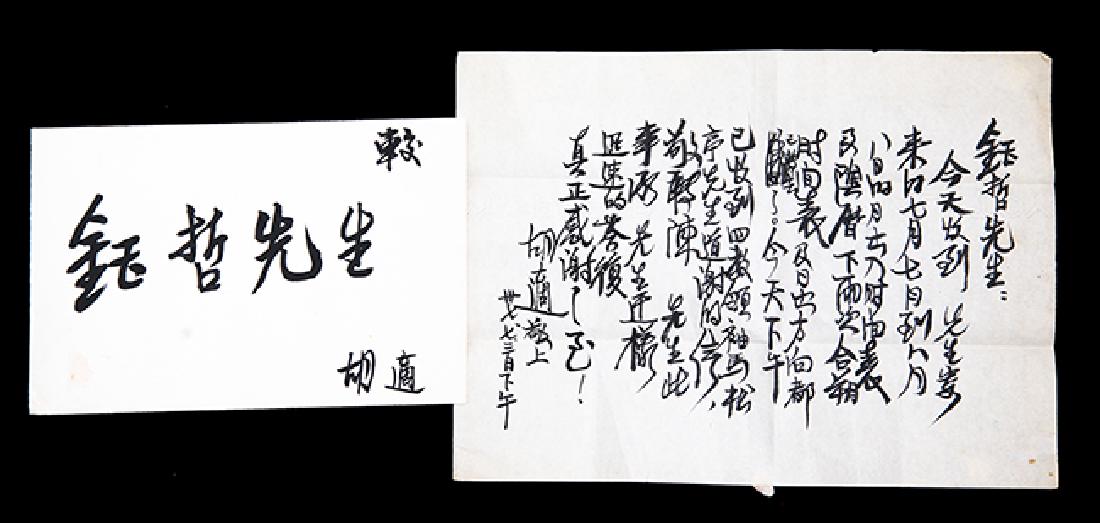 較
鈺哲先生
胡適
鈺哲先生：
今天收到 先生寄
来的七月七日到八月
八日的月 时间表
及陰曆下兩次合朔
时间表 及日出方向都
了。今天下午
已收到回教領袖馬松
亭先生道謝的信，
敬轉陳 先生此
事承 先生这樣
迅速的答復
真正感謝之至！
胡適敬上
卅七，七，三日下午